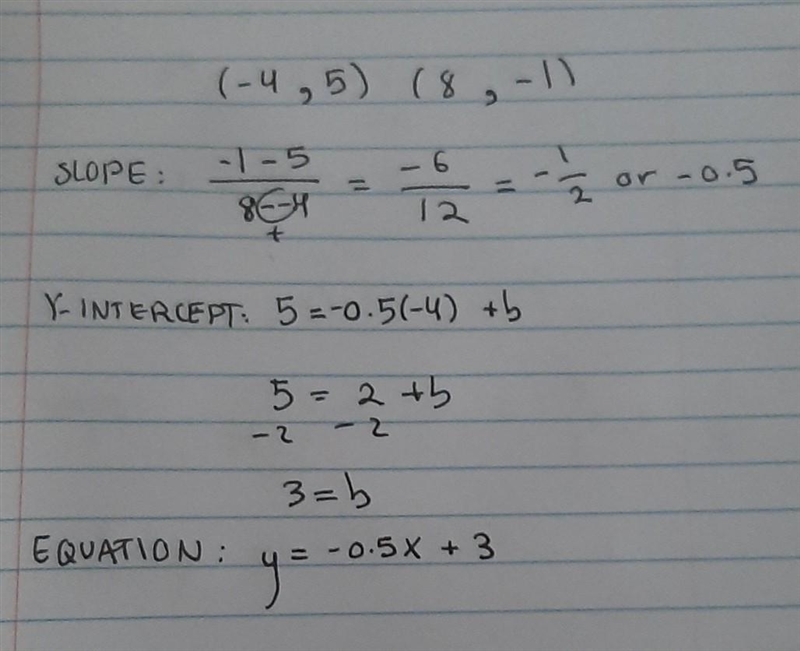 (-4, 5) (8, -1)
SLOPE: -1-5 / 8--4 = -6 / 12 = -1/2 or -0.5
+
Y-INTERCEPT: 5 = -0.5(-4) + b
5 = 2 + b
-2 -2
3 = b
EQUATION: y = -0.5x + 3